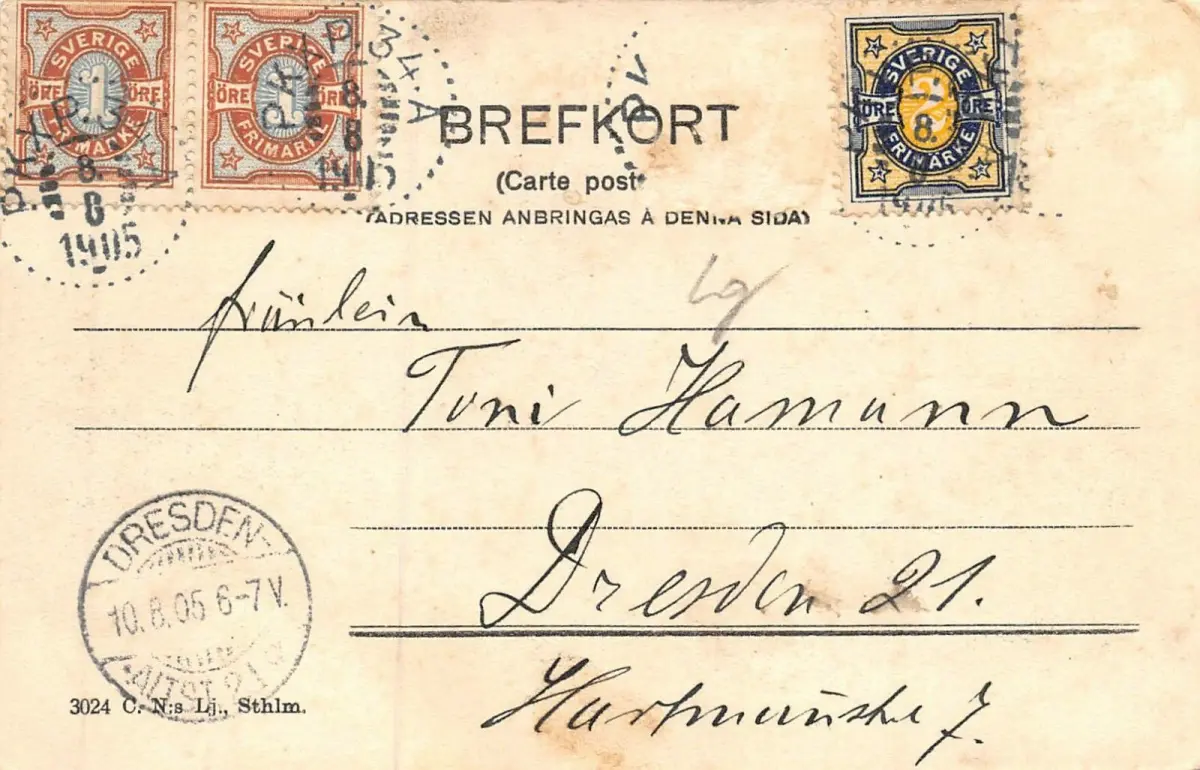 SVERIGE
ÖRE 1 ÖRE
FRIMÄRKE
SVERIGE
ÖRE 1 ÖRE
FRIMÄRKE
SVERIGE
ÖRE 2 ÖRE
FRIMÄRKE
PKXP.
8
8
1905
PKXP. 34. A
8
8
1905
8.
1905
BREFKORT
(Carte post
(ADRESSEN ANBRINGAS Å DENNA SIDA)
Lg
Fräulein
Toni Hamann
Dresden 21.
7.
DRESDEN-
10.8.05 6-7 V.
ALTST. 21
3024 C. N:s Lj., Sthlm.